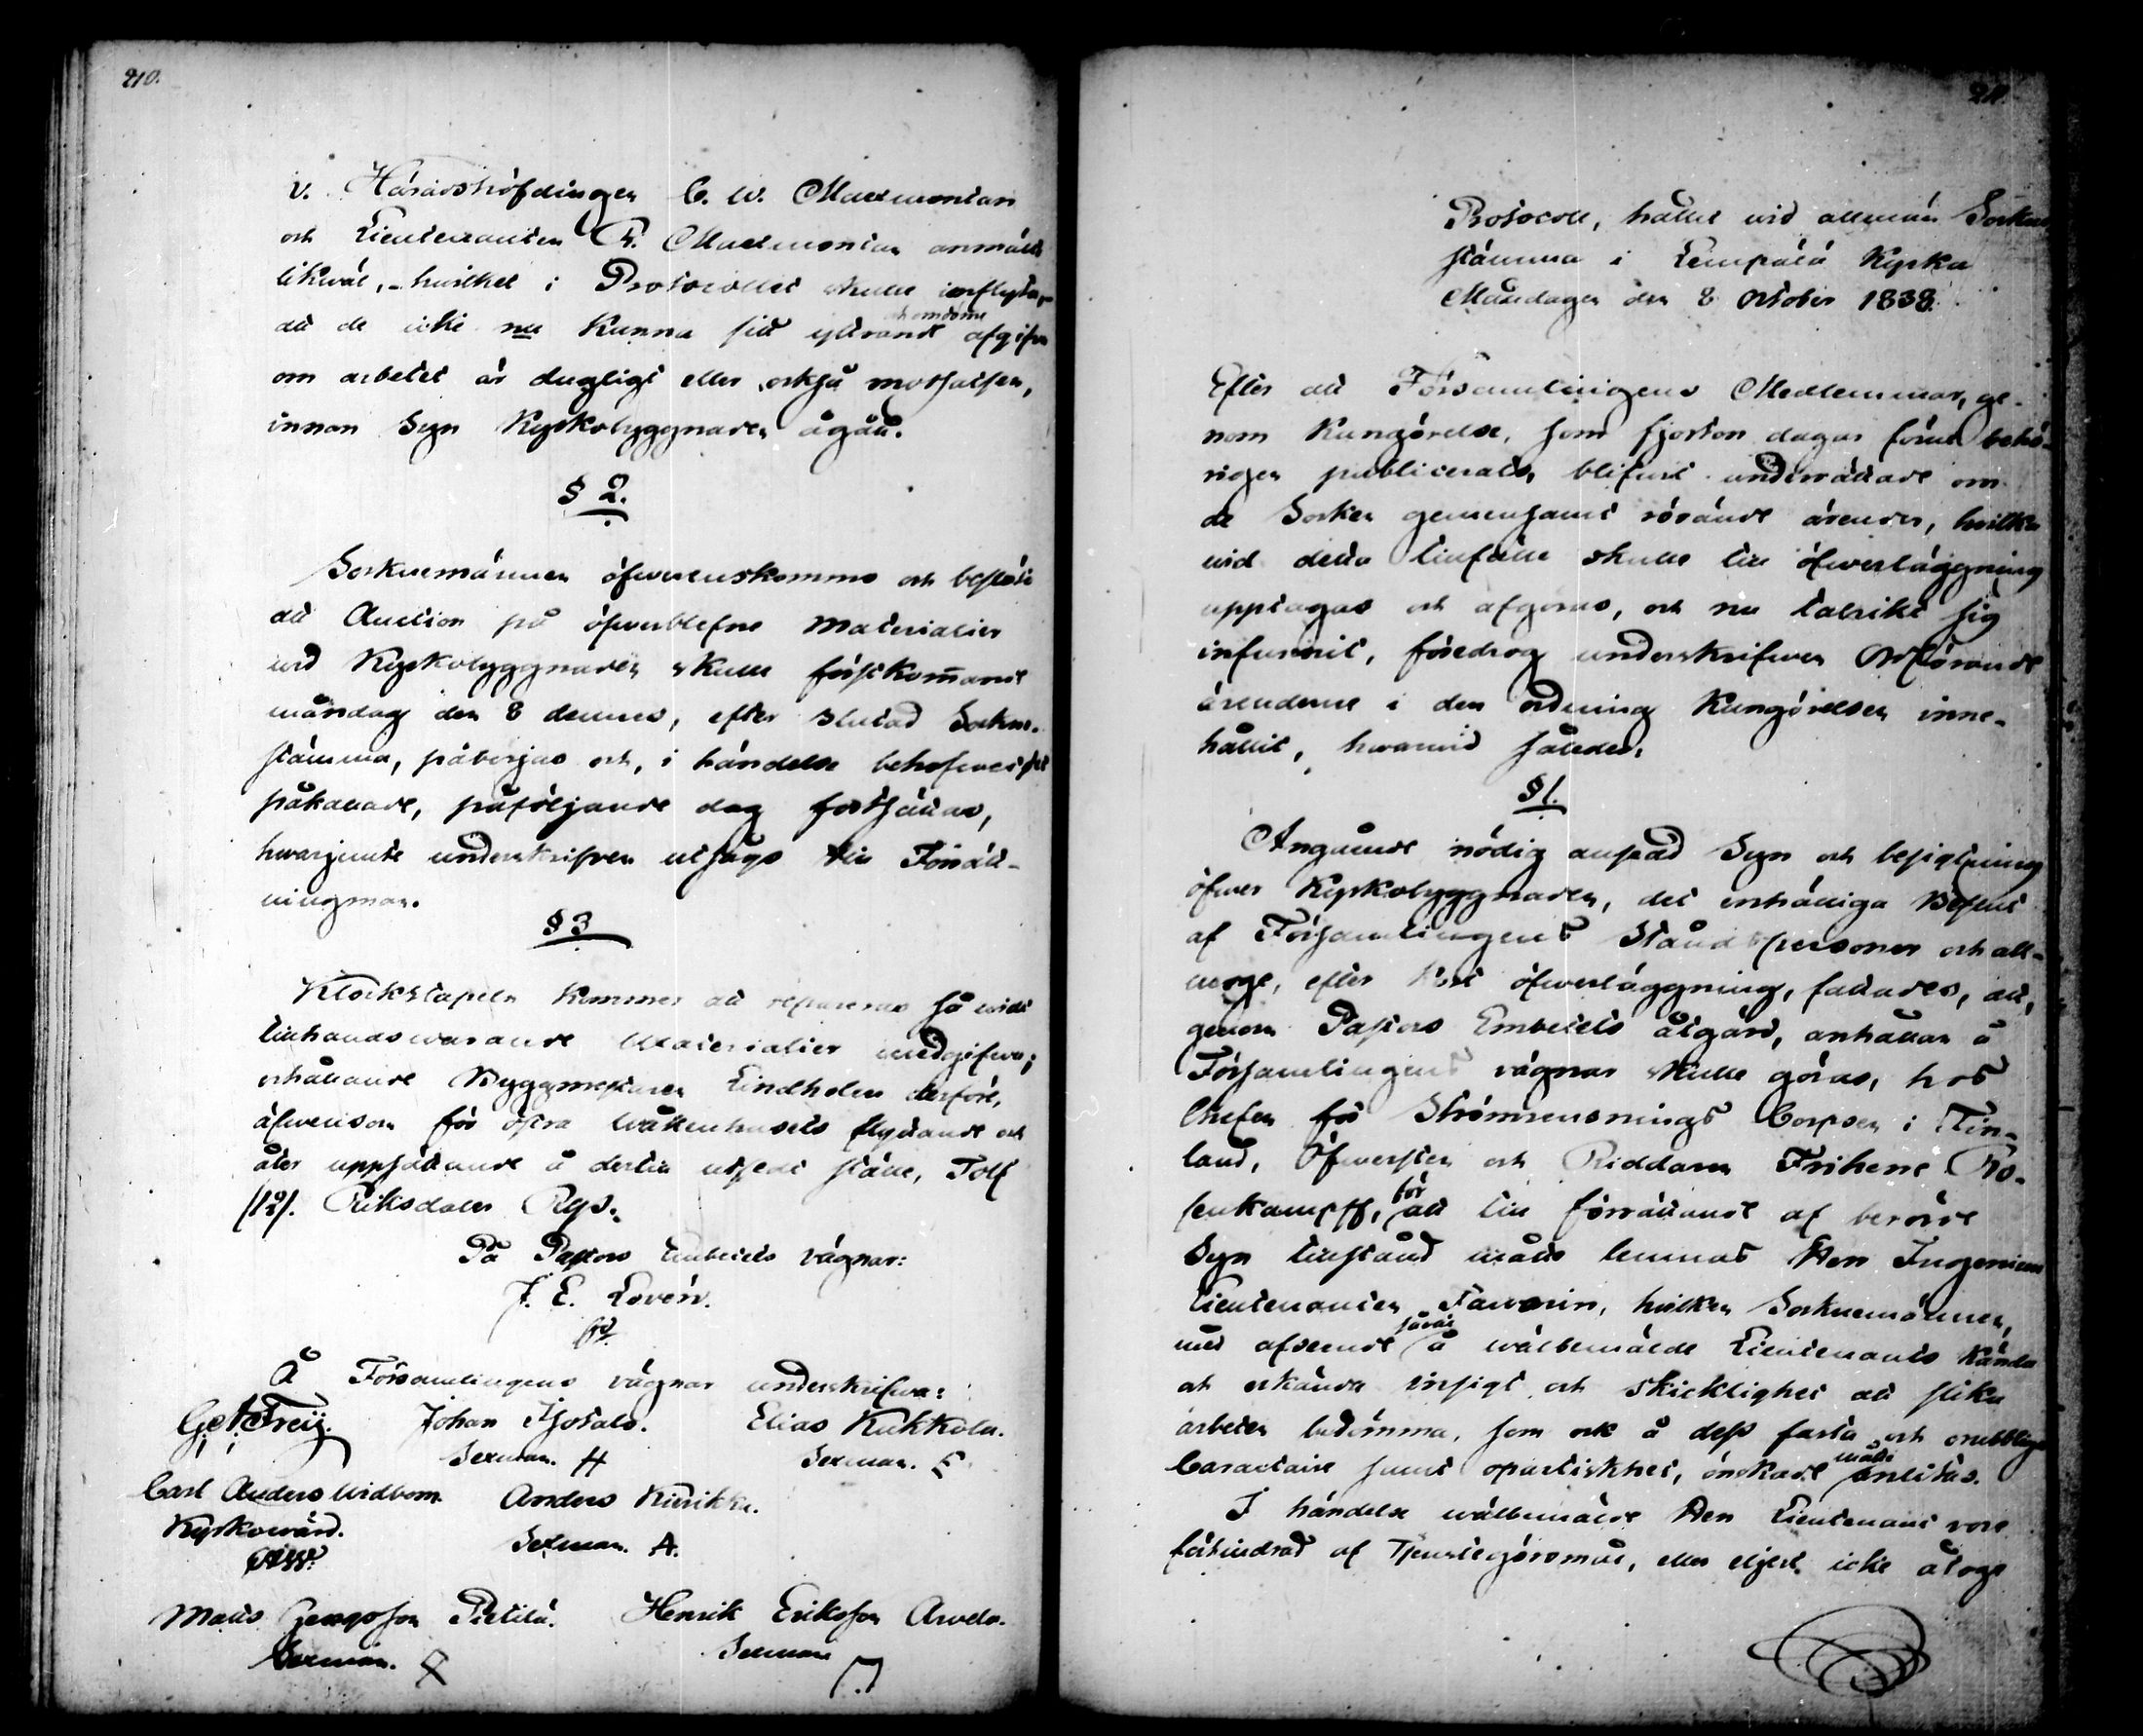 210.
v. Häradshöfdingen C. W. Malmontan
och Lieutenanten Malmontan anmälte
likväl, - hvilket i Protocollet skulle inflyta, -
att de icke nu kunna sitt yttrande och omdöme afgifva
om arbetet är dugligt eller ock så motsatsen,
innan Syn Kyrkobyggnaden ågått.
§ 2.
Socknemännen öfwerenskommo och beslöto
att Auction på öfwerblefne Materialier
wid Kyrkobyggnaden skulle förstkom̄ande
måndag den 8 dennes, efter slutad Sockne-
stämma, påbörjas och, i händelse behofwet så
påkallade, påföljande dag fortsättas,
hwarjemte underskrifven utsågs till Förrätt-
ningman.
§ 3
Klockstapeln kommer att repareras så widt
tillhandswarande Materialier medgifwa;
erhållande Byggmestaren Lindholm derföre,
äfwensom för östra Wåkenhusets flyttande och
åter uppsättande å dertill utsedt ställe, Tolf
/12/. Riksdaler Rgs.
På Pastors Embetets vägnar:
J. E. Lovén.
Å Församlingens vägnar underskrifwa:
G. A. Freij. Johan Sjotalo. Elias Kukkola.
Sexman. H Sexman. E
Carl Anders Widbom. Anders Kurikka.
Kyrkowärd. Sexman. A.
Matts Bengtsson Pietilä. Henrik Eriksson Arvela.
Sexman. Sexman
211.
Protocoll, hållet wid allmän Sockne
stämma i Lempälä Kyrka
Måndagen den 8 October 1838.
Efter att Församlingens Medlemmar, ge-
nom Kungörelse, som fjorton dagar förut behö-
rigen publicerats, blifwit underrättade om
de Socken gemensamt rörande ärender, hvilka
wid detta tillfälle skulle till öfwerläggning
upptagas och afgöras, och nu talrikt sig
infunnit, föredrog underskrifwen Ordförande
ärenderne i den ordning Kungörelsen inne-
hållit, hwarwid således:
§ 1.
Angående nödig ansedd Syn och besigtning
öfwer Kyrkobyggnaden, det enhälliga Beslut
af Församlingens Ståndspersoner och all-
moge, efter kort öfwerläggning, fattades, att,
genom Pastors Embetets åtgärd, anhållan å
Församlingens vägnar skulle göras, hos
Chefen för Strömrensnings Corpsen i Fin-
land, Öfwersten och Riddaren Friherre Ro-
senkampff, för att till förrättande af berörde
Syn tillstånd måtte lemnas Herr Ingenieur
Lieutenanten Faworin, hvilken Socknemännen,
med afseende såväl å wälbemälde Lieutenants kända
och erkända insigt och skicklighet att slika
arbeten bedömma, som ock å dess fasta och orubbliga
Caractaire samt opartiskhet, önskade måtte anlitas.
I händelse wälbemälde Herr Lieutenant vore
förhindrad af Tjenstegöromål, eller eljest icke åtoge